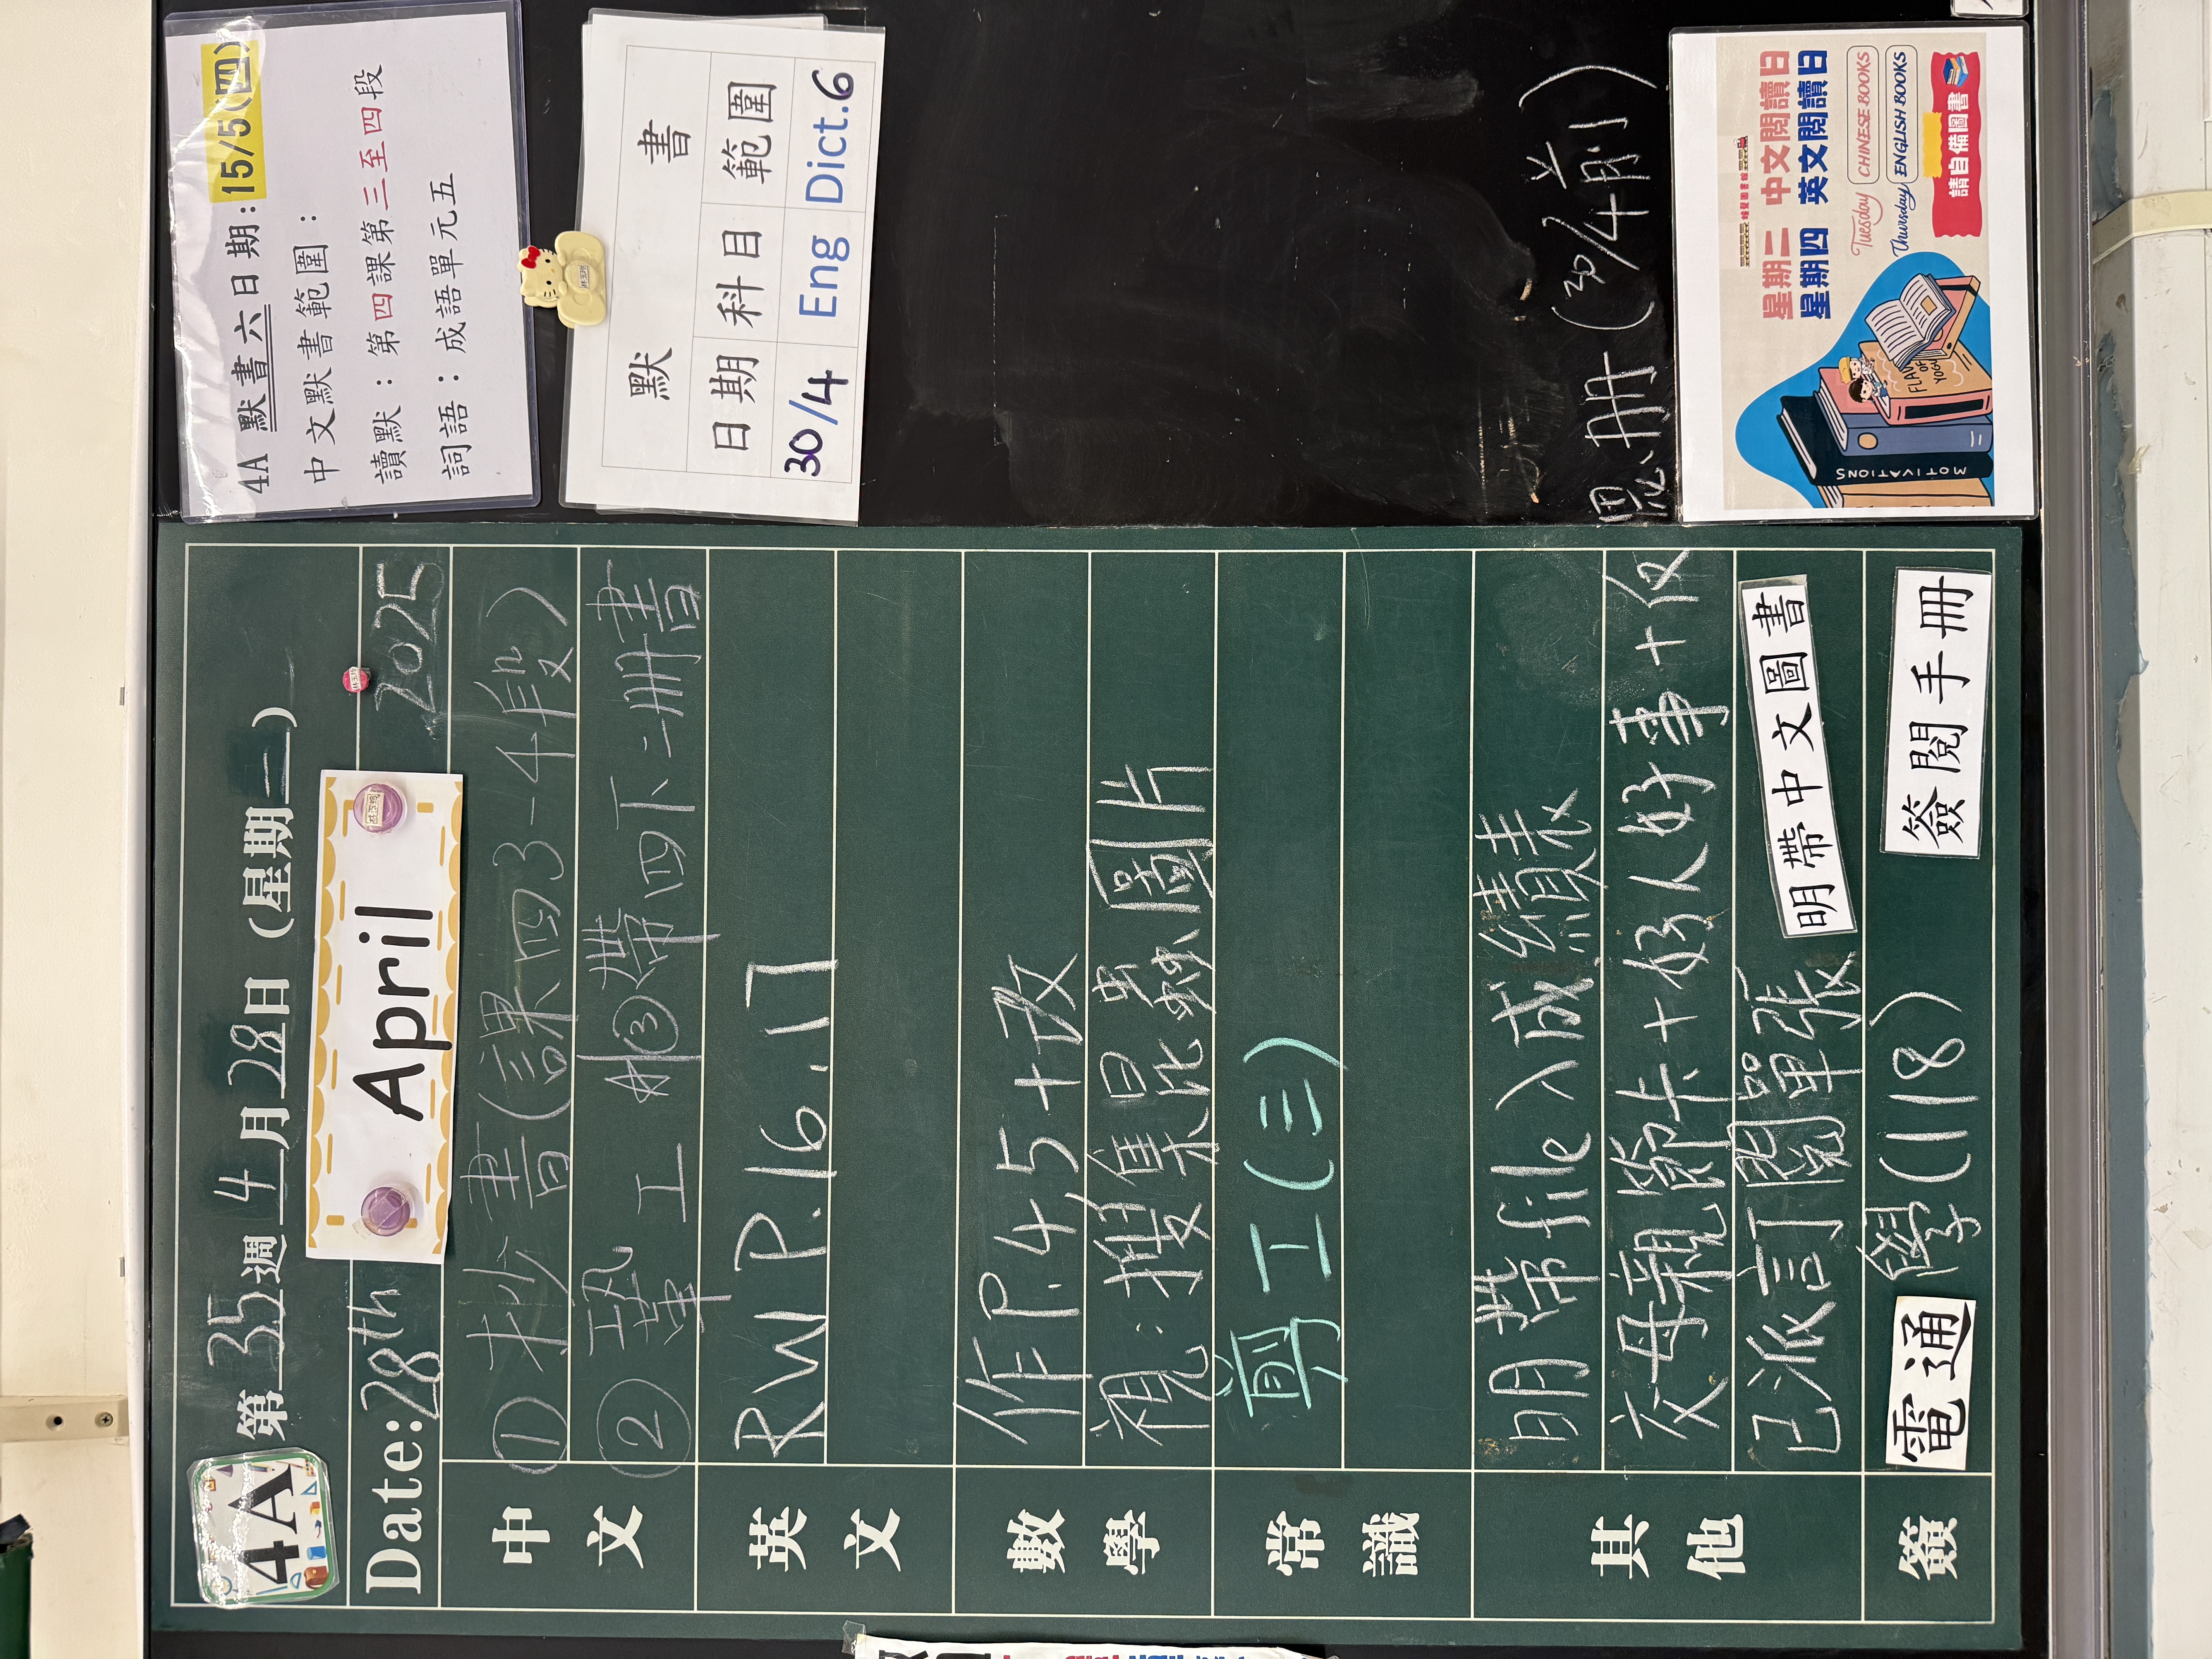 4A
第35週 4月28日(星期一)
Date: 28th April 2025
中文
① 抄書(課四3-4段)
② 工 #③帶四下二冊書
英文
RW P.16.17
數學
作P.4.5+改
視:搜集昆蟲圖片
常識
剪工(三)
其他
明帶file入成績表
交母親節卡+好人好事+反思冊(30/4前)
已派訂閱單張
明帶中文圖書
簽
電通
學(118)
簽閱手冊
4A 默書六日期:15/5(四)
中文默書範圍:
讀默:第四課第三至四段
詞語:成語單元五
默 書
日期 科目 範圍
30/4 Eng Dict.6
星期二 中文閱讀日
星期四 英文閱讀日
Tuesday CHINESE BOOKS
Thursday ENGLISH BOOKS
請自備圖書
MOTIVATIONS